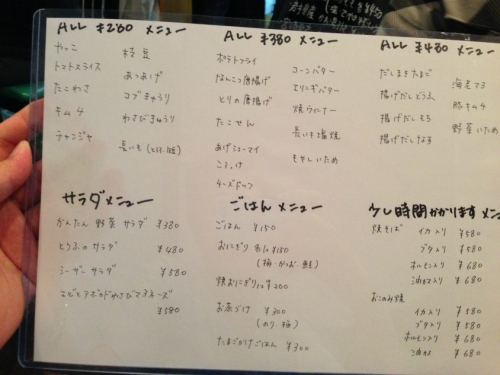 ALL ¥280 メニュー
やっこ
トマトスライス
たこわさ
キムチ
チャンジャ
枝豆
あつあげ
コブきゅうり
わさびきゅうり
長いも
ALL ¥380 メニュー
ポテトフライ
なんこつ唐揚げ
とりの唐揚げ
たこせん
あげシューマイ
ころっけ
チーズドッグ
コーンバター
エリンギバター
焼ウィンナー
長いも塩焼
もやしいため
ALL ¥480 メニュー
だしまきたまご
揚げだしどうふ
揚げだしもち
揚げだしなす
海老マヨ
豚キムチ
野菜いため
サラダメニュー
かんたん野菜サラダ ¥380
とうふのサラダ ¥480
シーザーサラダ ¥580
エビとアボカドわさびマヨネーズ ¥580
ごはんメニュー
ごはん ¥150
おにぎり 各1ヶ ¥150
(梅・かつお・鮭)
焼おにぎり 1ヶ ¥200
お茶づけ ¥300
(のり 梅)
たまごかけごはん ¥300
少し時間かかりますメニュー
焼そば イカ入り ¥580
ブタ入り ¥580
ホルモン入り ¥680
油かす入り ¥680
おこのみ焼
イカ入り ¥580
ブタ入り ¥580
ホルモン入り ¥680
油かす ¥680